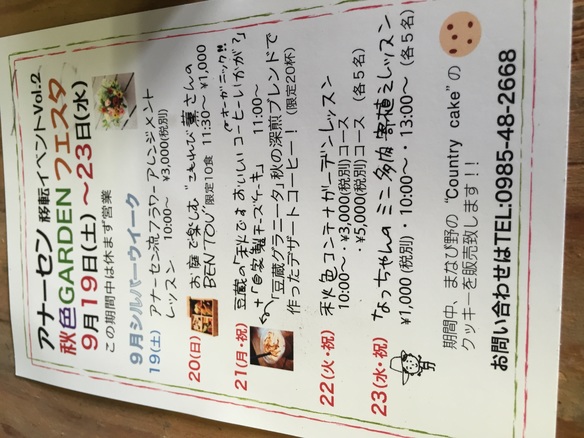 アナーセン 移転イベントVol.2
秋色GARDENフェスタ
9月19日(土)～23日(水)
この期間中は休まず営業
9月シルバーウイーク
19(土) アナーセン流フラワーアレンジメント
レッスン 10:00～ ¥3,000(税別)
20(日) お庭で楽しむ "こもれび菓さんの
BENTOU" 限定10食 11:30～ ¥1,000
21(月・祝) 豆蔵の「秋ですおいしいコーヒーいかが?」
+「自家製チーズケーキ」 11:00～
「豆蔵グラニータ」秋の深煎ブレンドで
作ったデザートコーヒー! (限定20杯)
22(火・祝) 秋色コンテナガーデンレッスン
10:00～ ・¥3,000(税別)コース
・¥5,000(税別)コース (各5名)
23(水・祝) なっちゃんのミニ多肉寄植えレッスン
¥1,000(税別)・10:00～・13:00～(各5名)
期間中、まなび野の "Country cake" の
クッキーを販売致します!!
お問い合わせはTEL:0985-48-2668